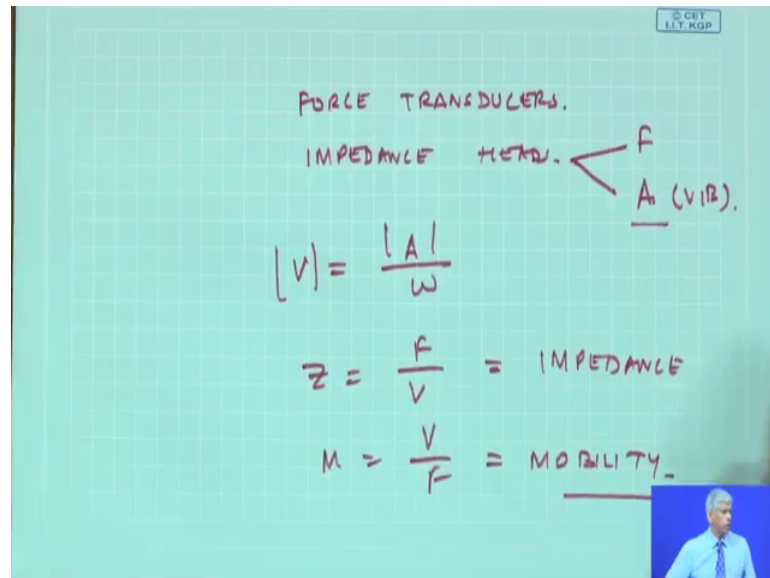 © CET
I.I.T. KGP
FORCE TRANSDUCERS.
IMPEDANCE HEAD. F
A (VIB).
|V| = |A| / ω
Z = F / V = IMPEDANCE
M = V / F = MOBILITY